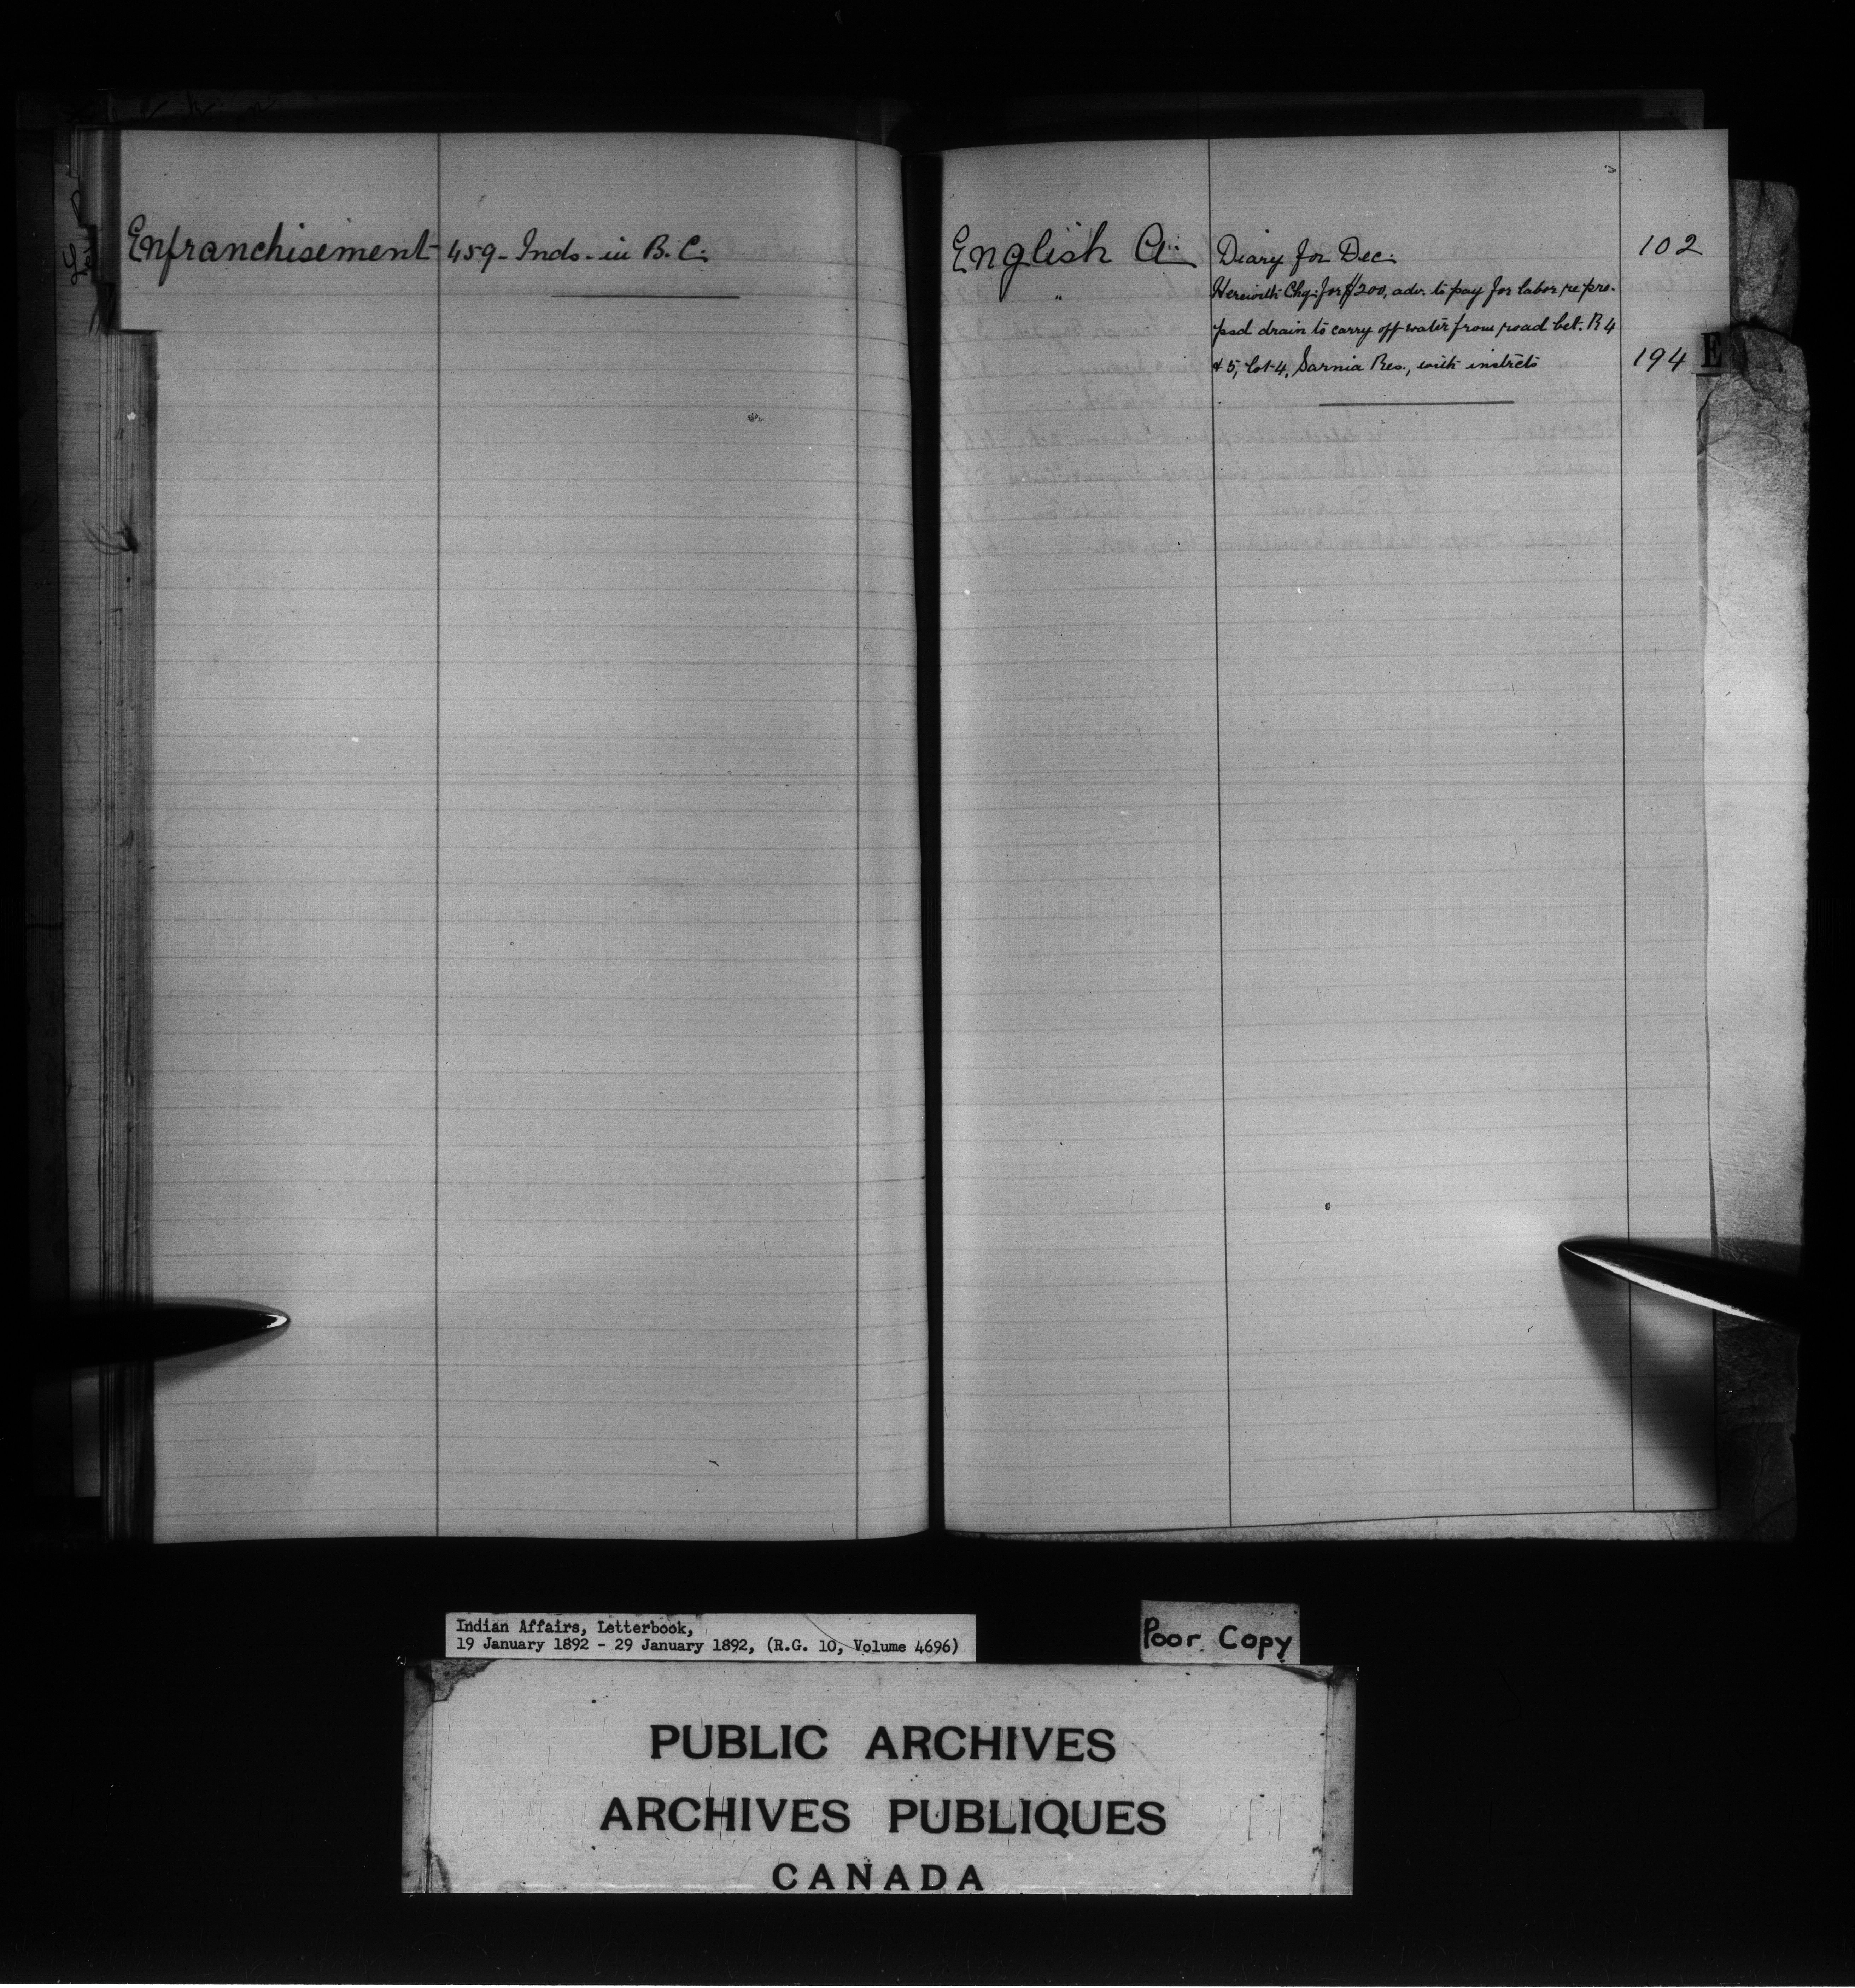 Enfranchisement 459 - Inds. in B.C.
English A. Diary for Dec. 102
" Herewith Chq. for $200, adv. to pay for labor re pro-
psd drain to carry off water from road bet. R 4
& 5, Lot 4, Sarnia Res., with instrcts 194
E
Indian Affairs, Letterbook,
19 January 1892 - 29 January 1892, (R.G. 10, Volume 4696)
Poor Copy
PUBLIC ARCHIVES
ARCHIVES PUBLIQUES
CANADA